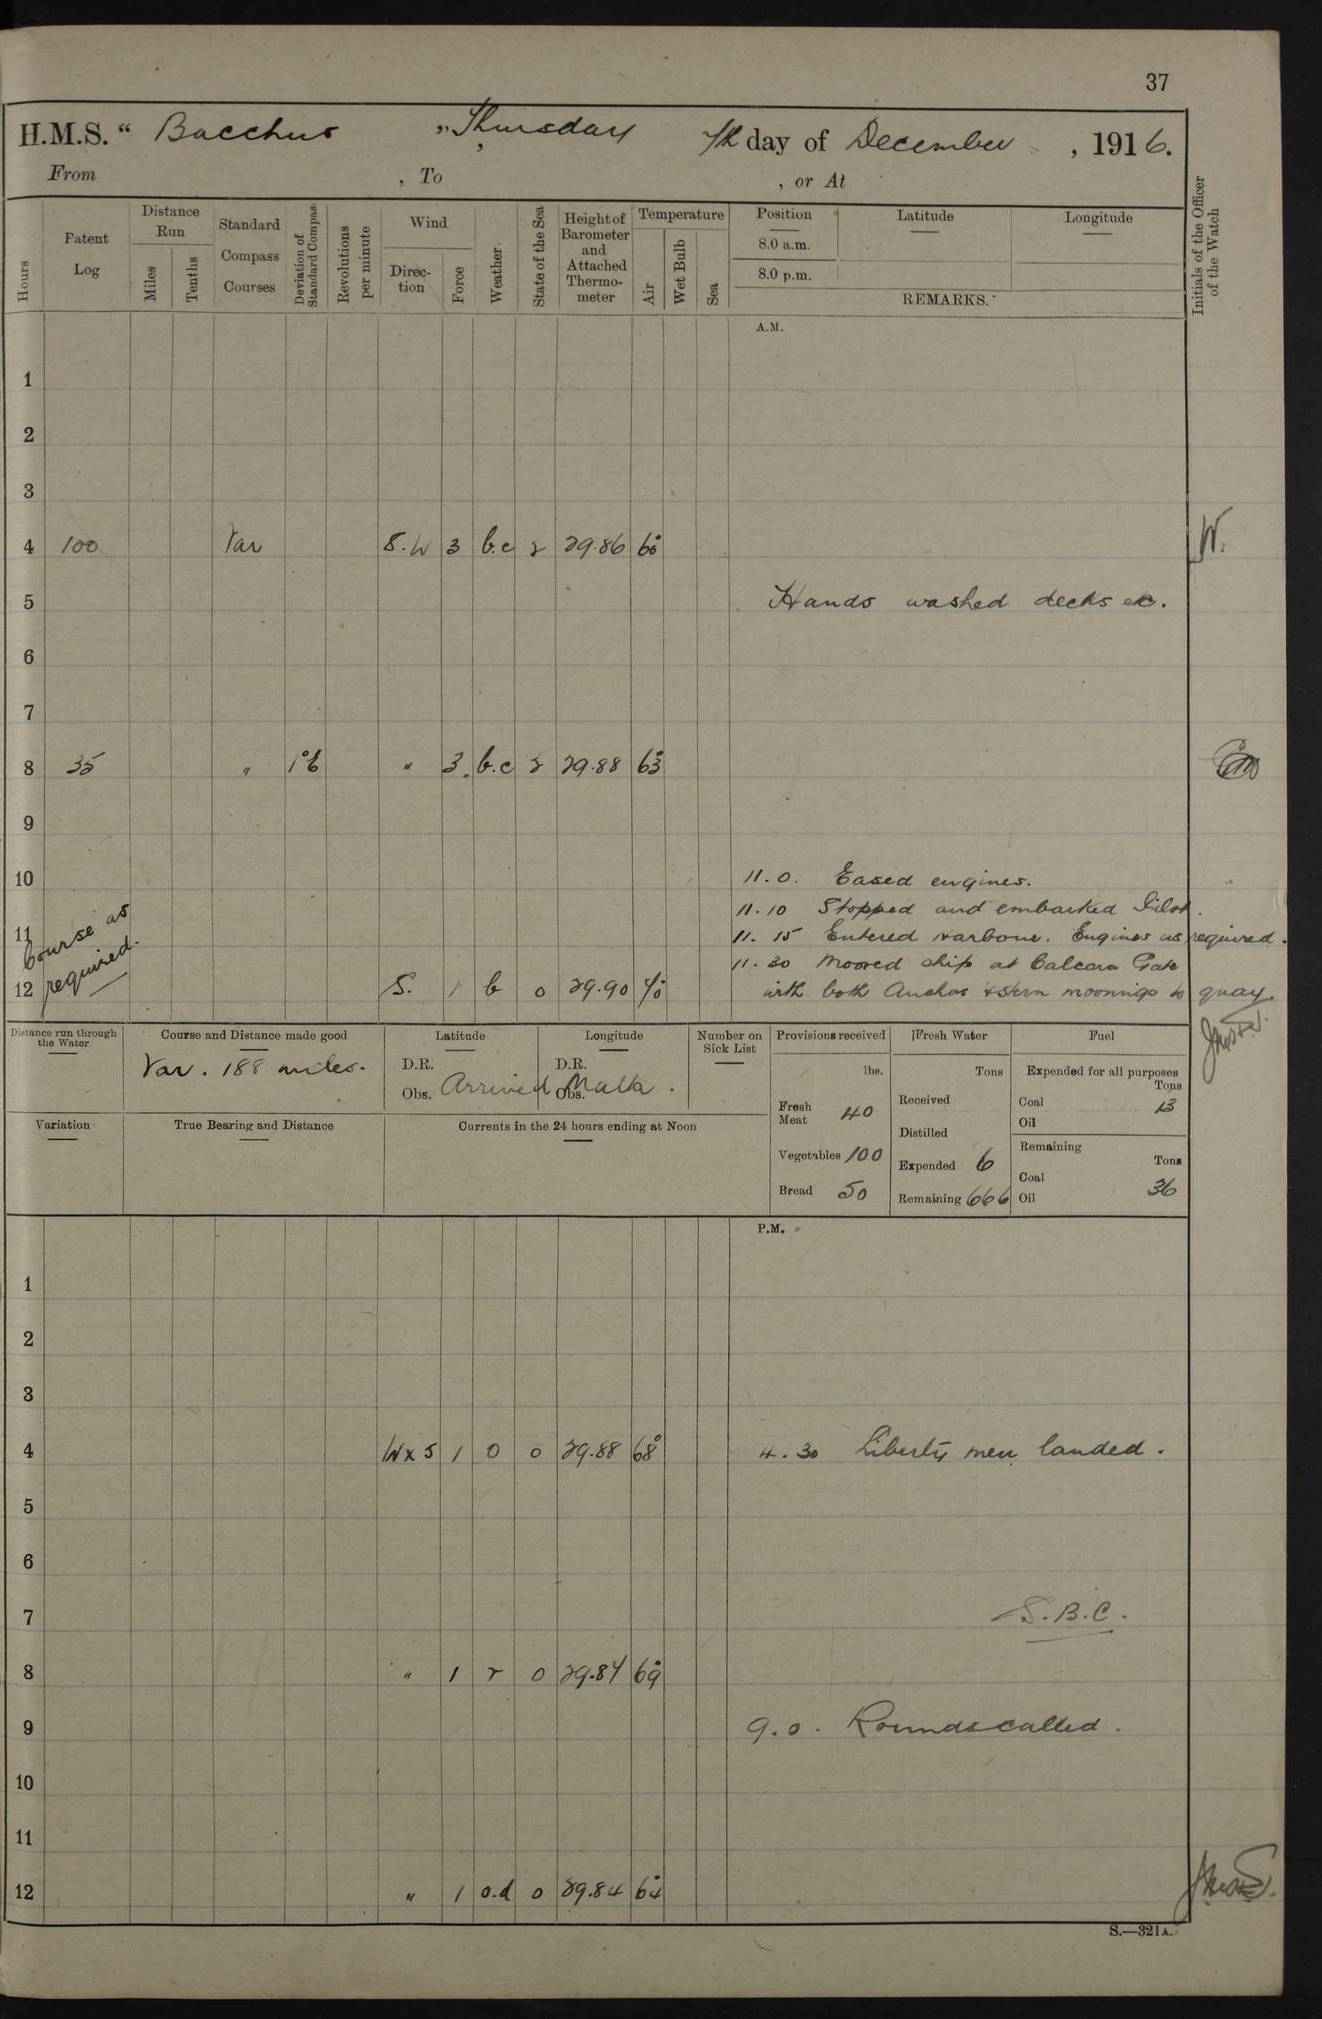 37
H.M.S. “ Bacchus ” Thursday 7th day of December , 1916.
From , To , or At
Hours
Patent Log
Distance Run
Miles
Tenths
Standard Compass Courses
Deviation of Standard Compass
Revolutions per minute
Wind
Direction
Force
Weather
State of the Sea
Height of Barometer and Attached Thermometer
Temperature
Air
Wet Bulb
Sea
Position
8.0 a.m.
8.0 p.m.
Latitude
Longitude
REMARKS.
Initials of the Officer of the Watch
A.M.
1
2
3
4 100 Var S.W 3 b.c 2 29.86 60° W.
5 Hands washed decks etc.
6
7
8 35 " 1°E " 3 b.c 2 29.88 63°
9
10 11.0. Eased engines.
11.10 Stopped and embarked Pilot.
11 Course as required. 11.15 Entered Harbour. Engines as required.
11.30 Moored ship at Calcara Gate
12 S. 1 b 0 29.90 70° with both Anchors & stern moorings to quay.
Distance run through the Water
Course and Distance made good
Var. 188 miles.
Latitude
D.R.
Obs.
Longitude
D.R.
Obs.
Arrived Malta.
Number on Sick List
Provisions received
lbs.
Fresh Meat 40
Vegetables 100
Bread 50
Fresh Water
Tons
Received
Distilled
Expended 6
Remaining 666
Fuel
Expended for all purposes
Tons
Coal 13
Oil
Remaining
Tons
Coal 36
Oil
Variation
True Bearing and Distance
Currents in the 24 hours ending at Noon
P.M.
1
2
3
4 W x S 1 0 0 29.88 68° 4.30 Liberty men landed.
5
6
7 S.B.C.
8 " 1 r 0 29.87 69°
9 9.0. Rounds called.
10
11
12 " 1 o.d 0 29.84 64°
S.—321A.